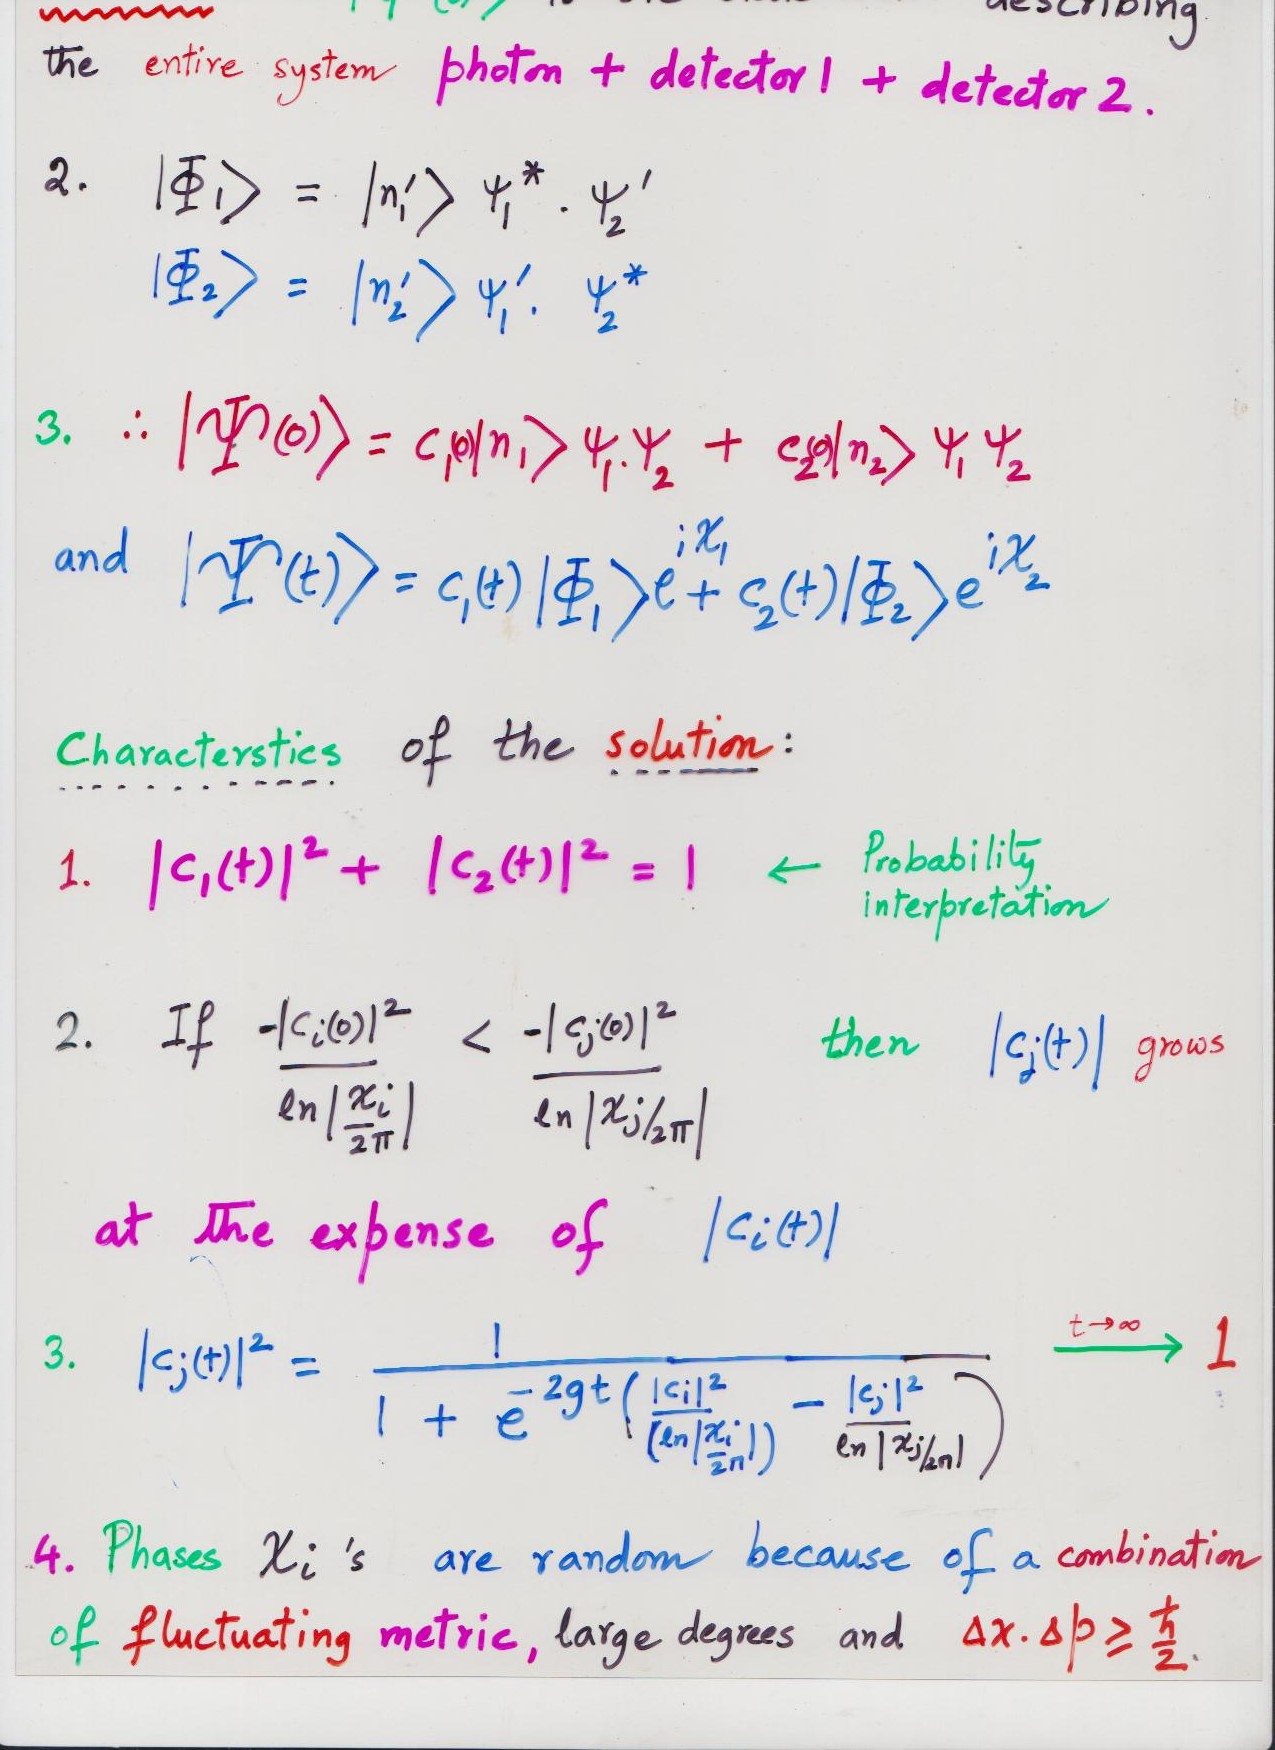 describing
the entire system photon + detector 1 + detector 2.
2. |Φ₁> = |n₁'> ψ₁* . ψ₂'
|Φ₂> = |n₂'> ψ₁' . ψ₂*
3. ∴ |Ψ(0)> = c₁(0)|n₁> ψ₁.ψ₂ + c₂(0)|n₂> ψ₁ ψ₂
and |Ψ(t)> = c₁(t)|Φ₁>e^{iχ₁} + c₂(t)|Φ₂>e^{iχ₂}
Characterstics of the solution:
1. |c₁(t)|² + |c₂(t)|² = 1 ← Probability
interpretation
2. If -|cᵢ(0)|² / ln|χᵢ/2π| < -|cⱼ(0)|² / ln|χⱼ/2π| then |cⱼ(t)| grows
at the expense of |cᵢ(t)|
3. |cⱼ(t)|² = 1 / (1 + e^{-2gt(|cᵢ|²/(ln|χᵢ/2π|) - |cⱼ|²/ln|χⱼ/2π|)}) t→∞ → 1
4. Phases χᵢ's are random because of a combination
of fluctuating metric, large degrees and Δx.Δp ≥ ħ/2.